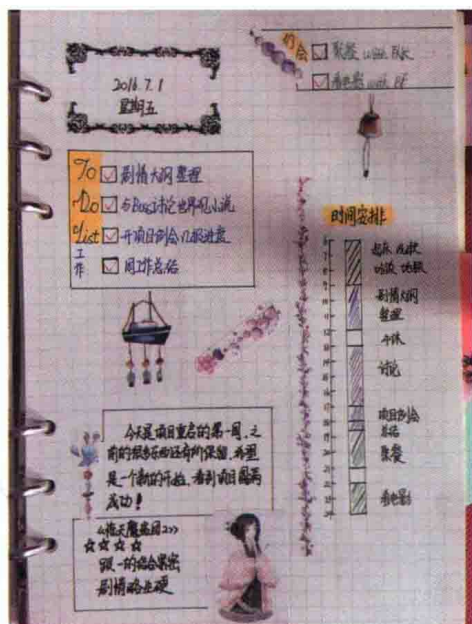 2016.7.1
星期五
约会
聚餐 with
看电影 with BF
To Do List
工作
剧情大纲整理
与Boss讨论世界观小说
开项目例会汇报进度
周工作总结
时间安排
起床 洗漱
吃饭
剧情大纲
整理
午休
讨论
项目例会
总结
聚餐
看电影
今天是项目重启的第一周，之
前的很多东西还有所保留，希望
是一个新的开始，看到项目圆满
成功！
《惊天魔盗团2》
☆☆☆☆
跟一的结合紧密
剧情略生硬